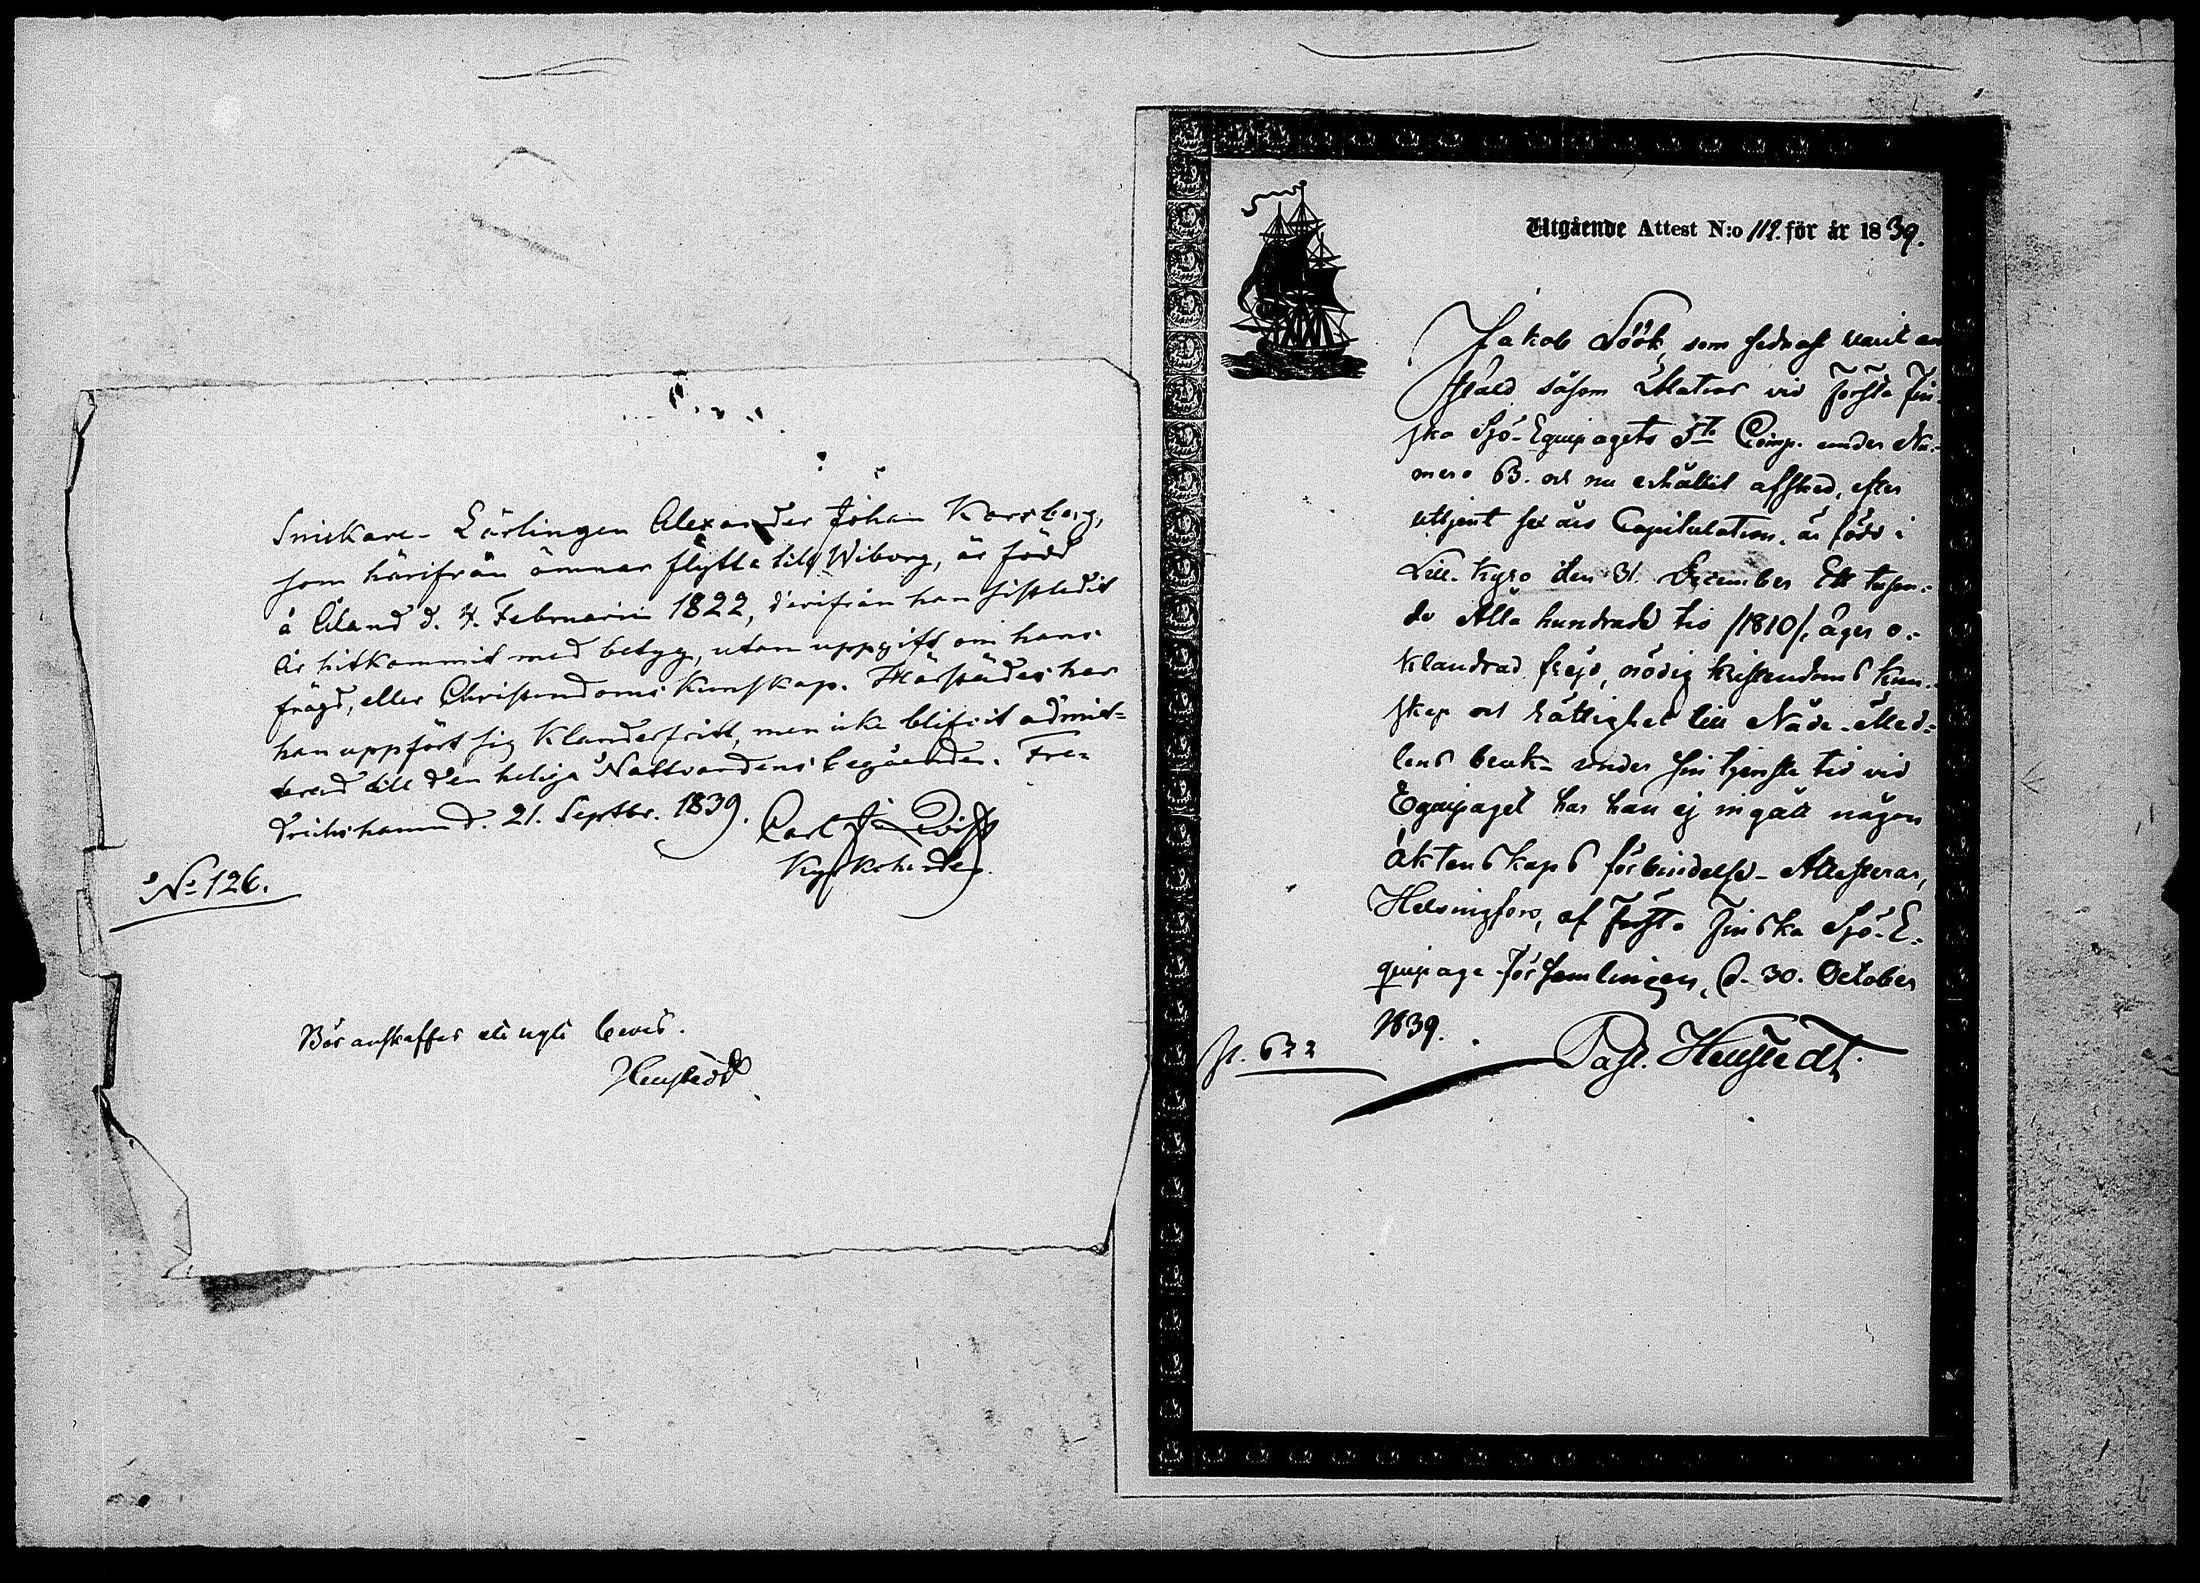 Snickare-Lärlingen Alexander Johan Korsberg,
som härifrån ämnar flytta till Wiborg, är född
å Åland d. 4. Februarii 1822, derifrån han sistledit
år hitkommit med betyg, utan uppgift om hans
frägd, eller Christendoms Kunskap. Härstädes har
han uppfört sig Klanderfritt, men icke blifvit admit=
terad till den heliga Nattvardens begående. Fre=
drichshamn d. 21. Septbr. 1839. Carl
Kyrkoherde.
No 126.
Bör anskaffas nytt bevis.
Heustedt
Utgående Attest N:o 112. för år 1839.
Jakob Löök, som sednast varit an
stäld såsom Matros vid Första Fin-
ska Sjö-Equipagets 5te Comp. under Nu-
mero 63. och nu erhållit afsked, efter
uttjent sex års Capitulation, är född i
Lill-Kyro den 31. December Ett tusen-
de Åtta hundrade tio /1810/, äger o-
klandrad frejd, nödig kristendoms kun-
skap och rättighet till Nåde-Med-
lens bruk - under sin tjenste tid vid
Equipaget har han ej ingått någon
äktenskaps förbindelse - Attesterar,
Helsingfors, af Första Finska Sjö-E-
quipage-Församlingen, d. 30. October
1839.
Past. Heustedt.
p. 672